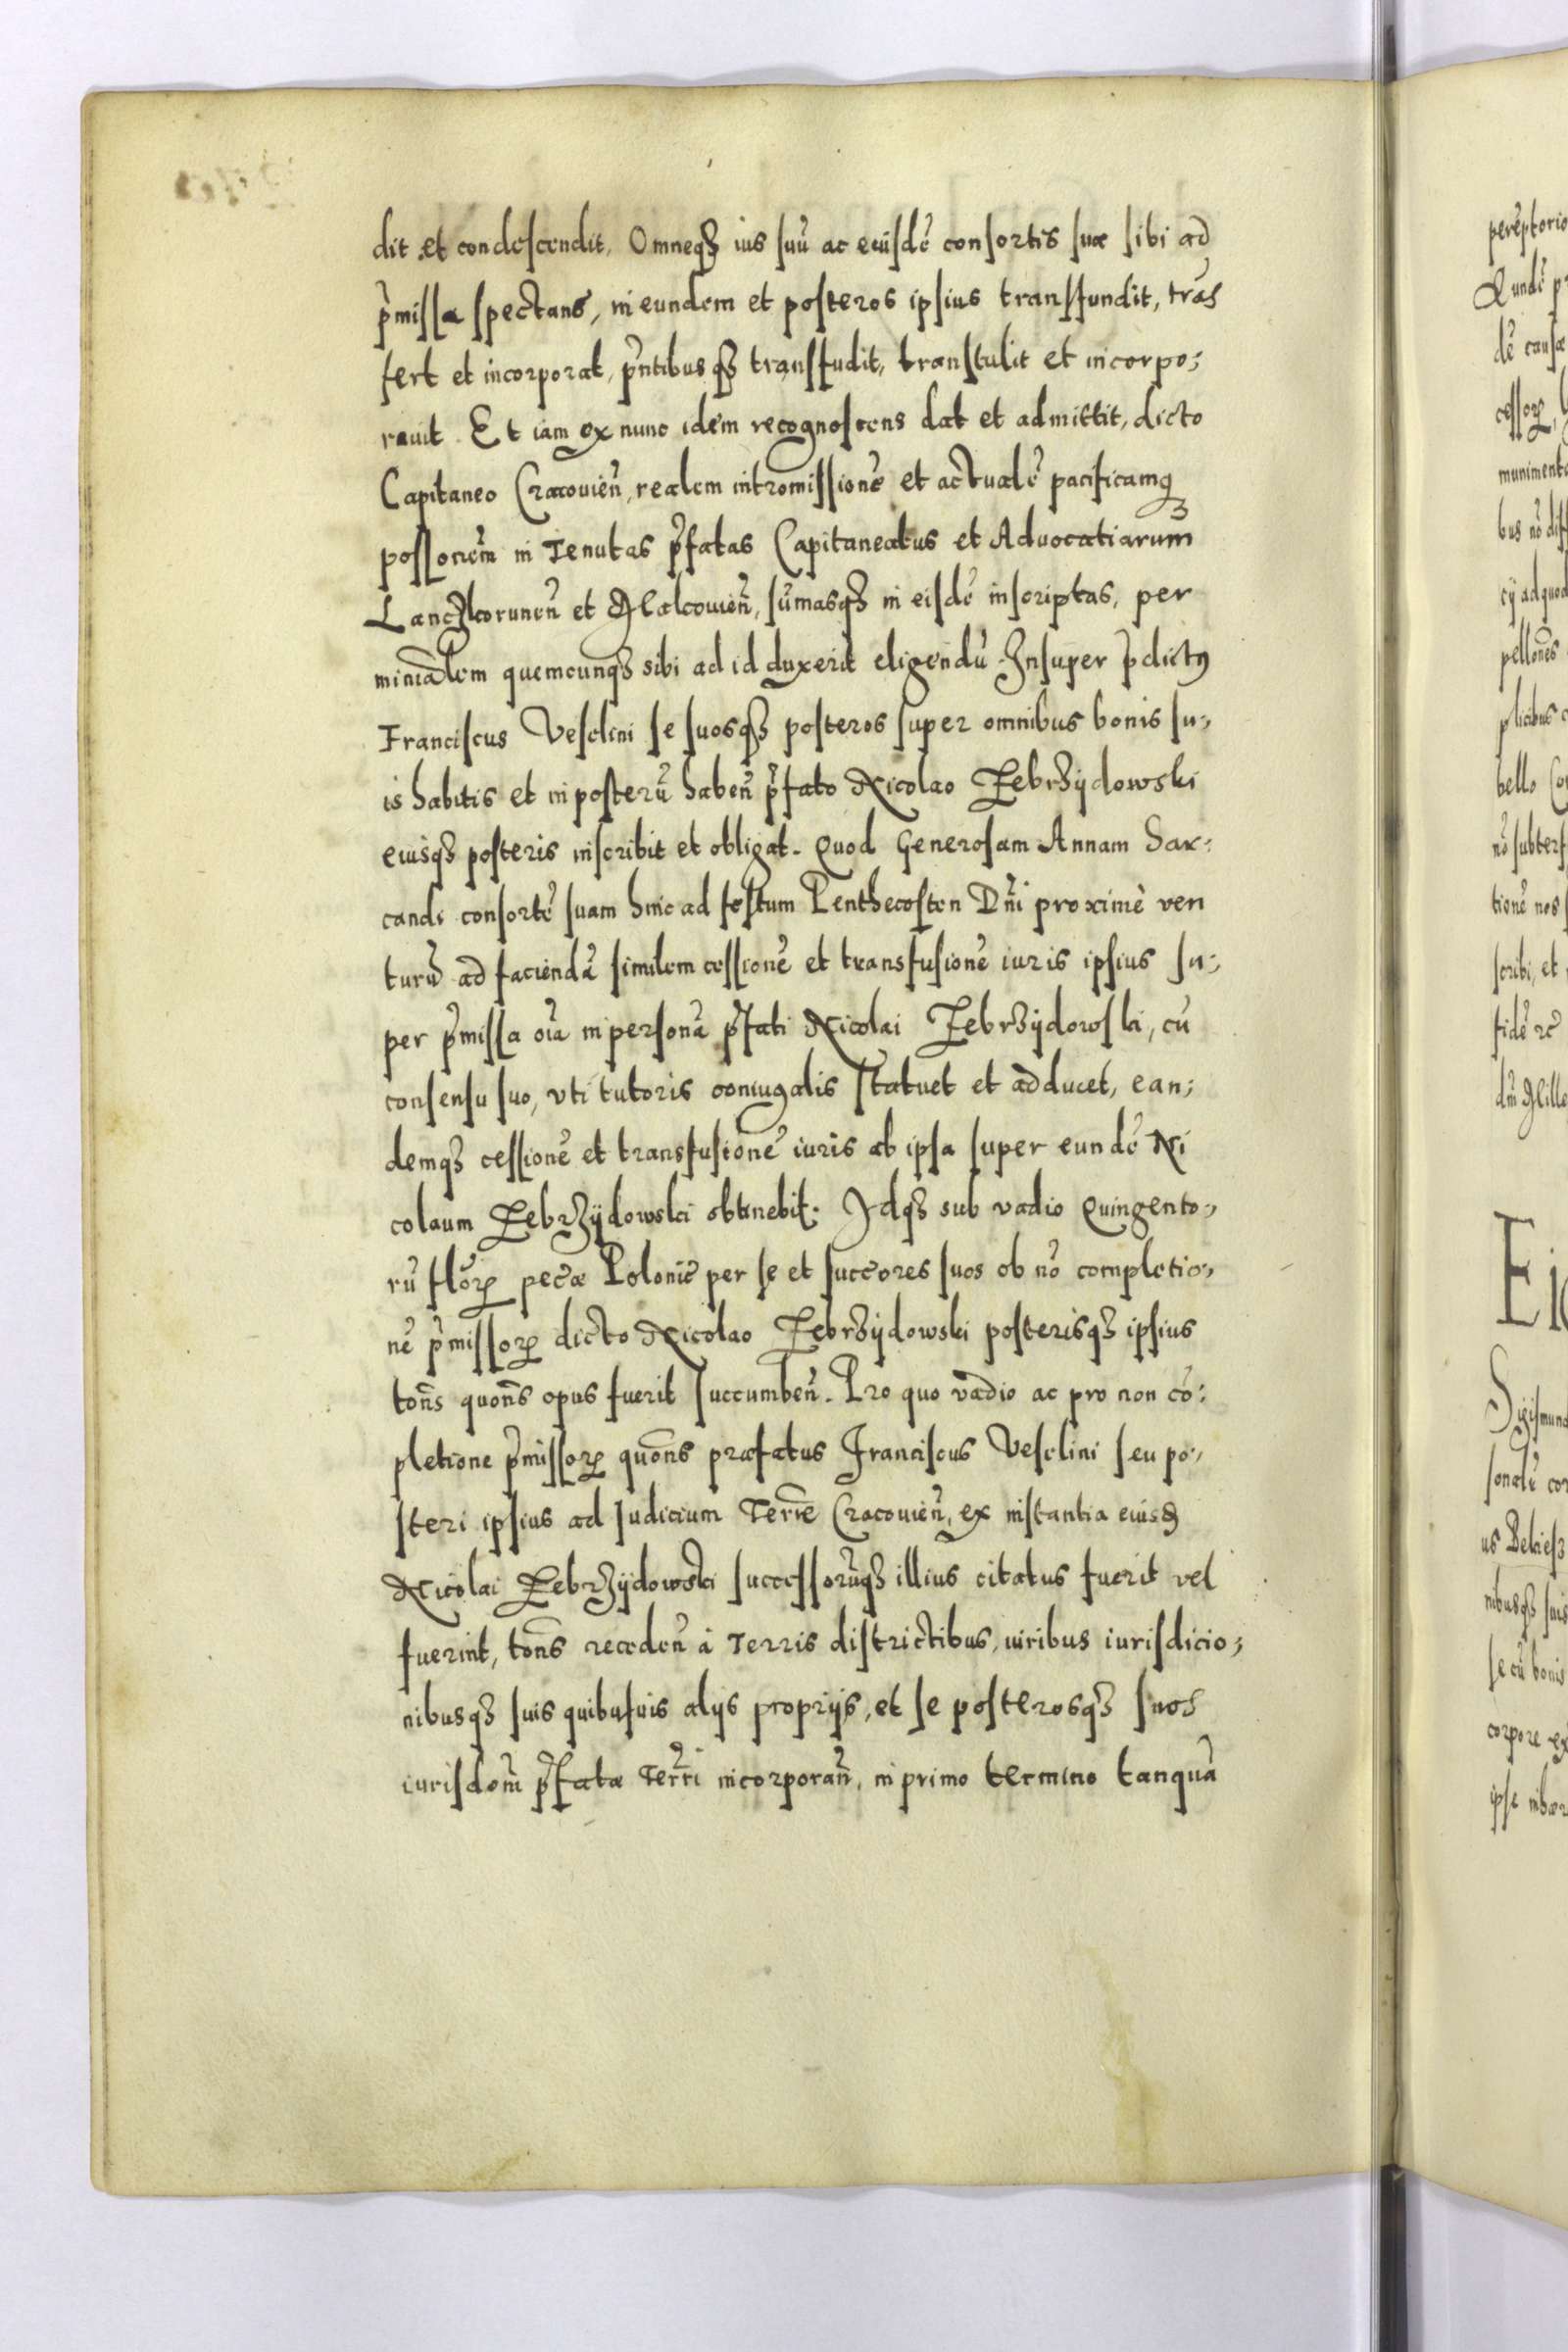 dit et condescendit. Omneqꝫ ius suũ ac eiusdẽ consortis suæ sibi ad
p̃missa spectans, in eundem et posteros ipsius transfundit, trãs
fert et incorporat, p̃ntibusqꝫ transfudit, transtulit et incorpo;
rauit. Et iam ex nunc idem recognoscens dat et admittit, dicto
Capitaneo Cracouien̄, realem intromissionẽ et actualẽ pacificamqꝫ
possoñem in Tenutas p̃fatas Capitaneatus et Aduocatiarum
Lanczkorunen̄ et Wlalcouien̄, sũmasqꝫ in eisdẽ inscriptas, per
ministerialem quemcunqꝫ sibi ad id duxerit eligendũ. Insuper p̃dictꝰ
Franciscus Veselini se suosqꝫ posteros super omnibus bonis su,
is habitis et in posterũ haben̄ p̃fato Nicolao Zebrzÿdowski
eiusqꝫ posteris inscribit et obligat. Quod Generosam Annam Sar:
candi consortẽ suam hinc ad festum Penthecosten Dn̄i proximè ven
turũ ad faciendã similem cessionẽ et transfusionẽ iuris ipsius su,
per p̃missa oĩa in personã p̃fati Nicolai Zebrzÿdowski, cũ
consensu suo, vti tutoris coniugalis statuet et adducet, ean;
demqꝫ cessionẽ et transfusionẽ iuris ab ipsa super eundẽ Ni
colaum Zebrzÿdowski obtinebit. Idqꝫ sub vadio Quingento,
rũ florꝝ pecæ Poloniẽ per se et succõres suos ob nõ completio,
nẽ p̃missorꝝ dicto Nicolao Zebrzÿdowski posterisqꝫ ipsius
tõns quõns opus fuerit succumben̄. Pro quo vadio ac pro non cõ:
pletione p̃missorꝝ quõns præfatus Franciscus Veselini seu po,
steri ipsius ad Iudicium Terrẽ Cracouien̄, ex instantia eiusd
Nicolai Zebrzÿdowski successorũqꝫ illius citatus fuerit vel
fuerint, tõns receden̄ à Terris districtibus, iuribus iurisdicio;
nibusqꝫ suis quibusuis alÿs proprÿs, et se posterosqꝫ suos
iurisdom̃ p̃fatæ Terr̃i incorporan̄, in primo termino tanquã